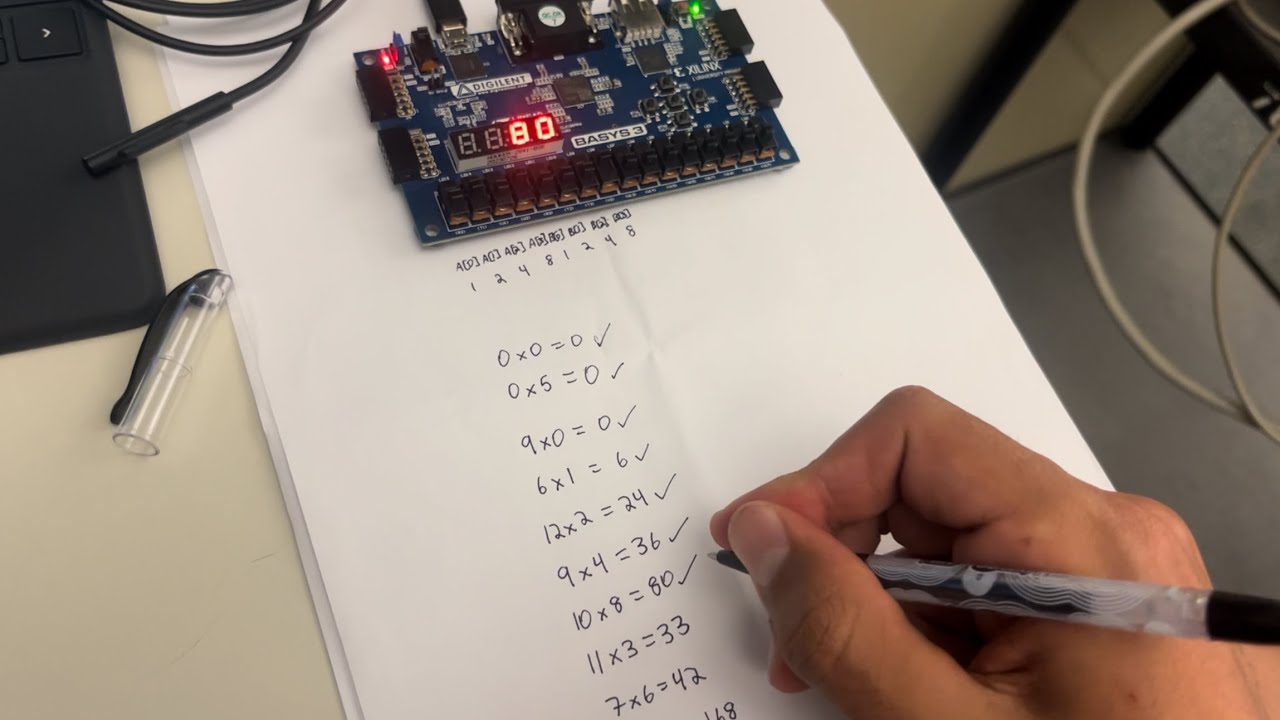 XILINX
DIGILENT
80
BASYS 3
A[0] A[1] A[2] A[3] B[0] B[1] B[2] B[3]
1 2 4 8 1 2 4 8
0×0=0 ✓
0×5=0 ✓
9×0=0 ✓
6×1=6 ✓
12×2=24 ✓
9×4=36 ✓
10×8=80 ✓
11×3=33
7×6=42
168